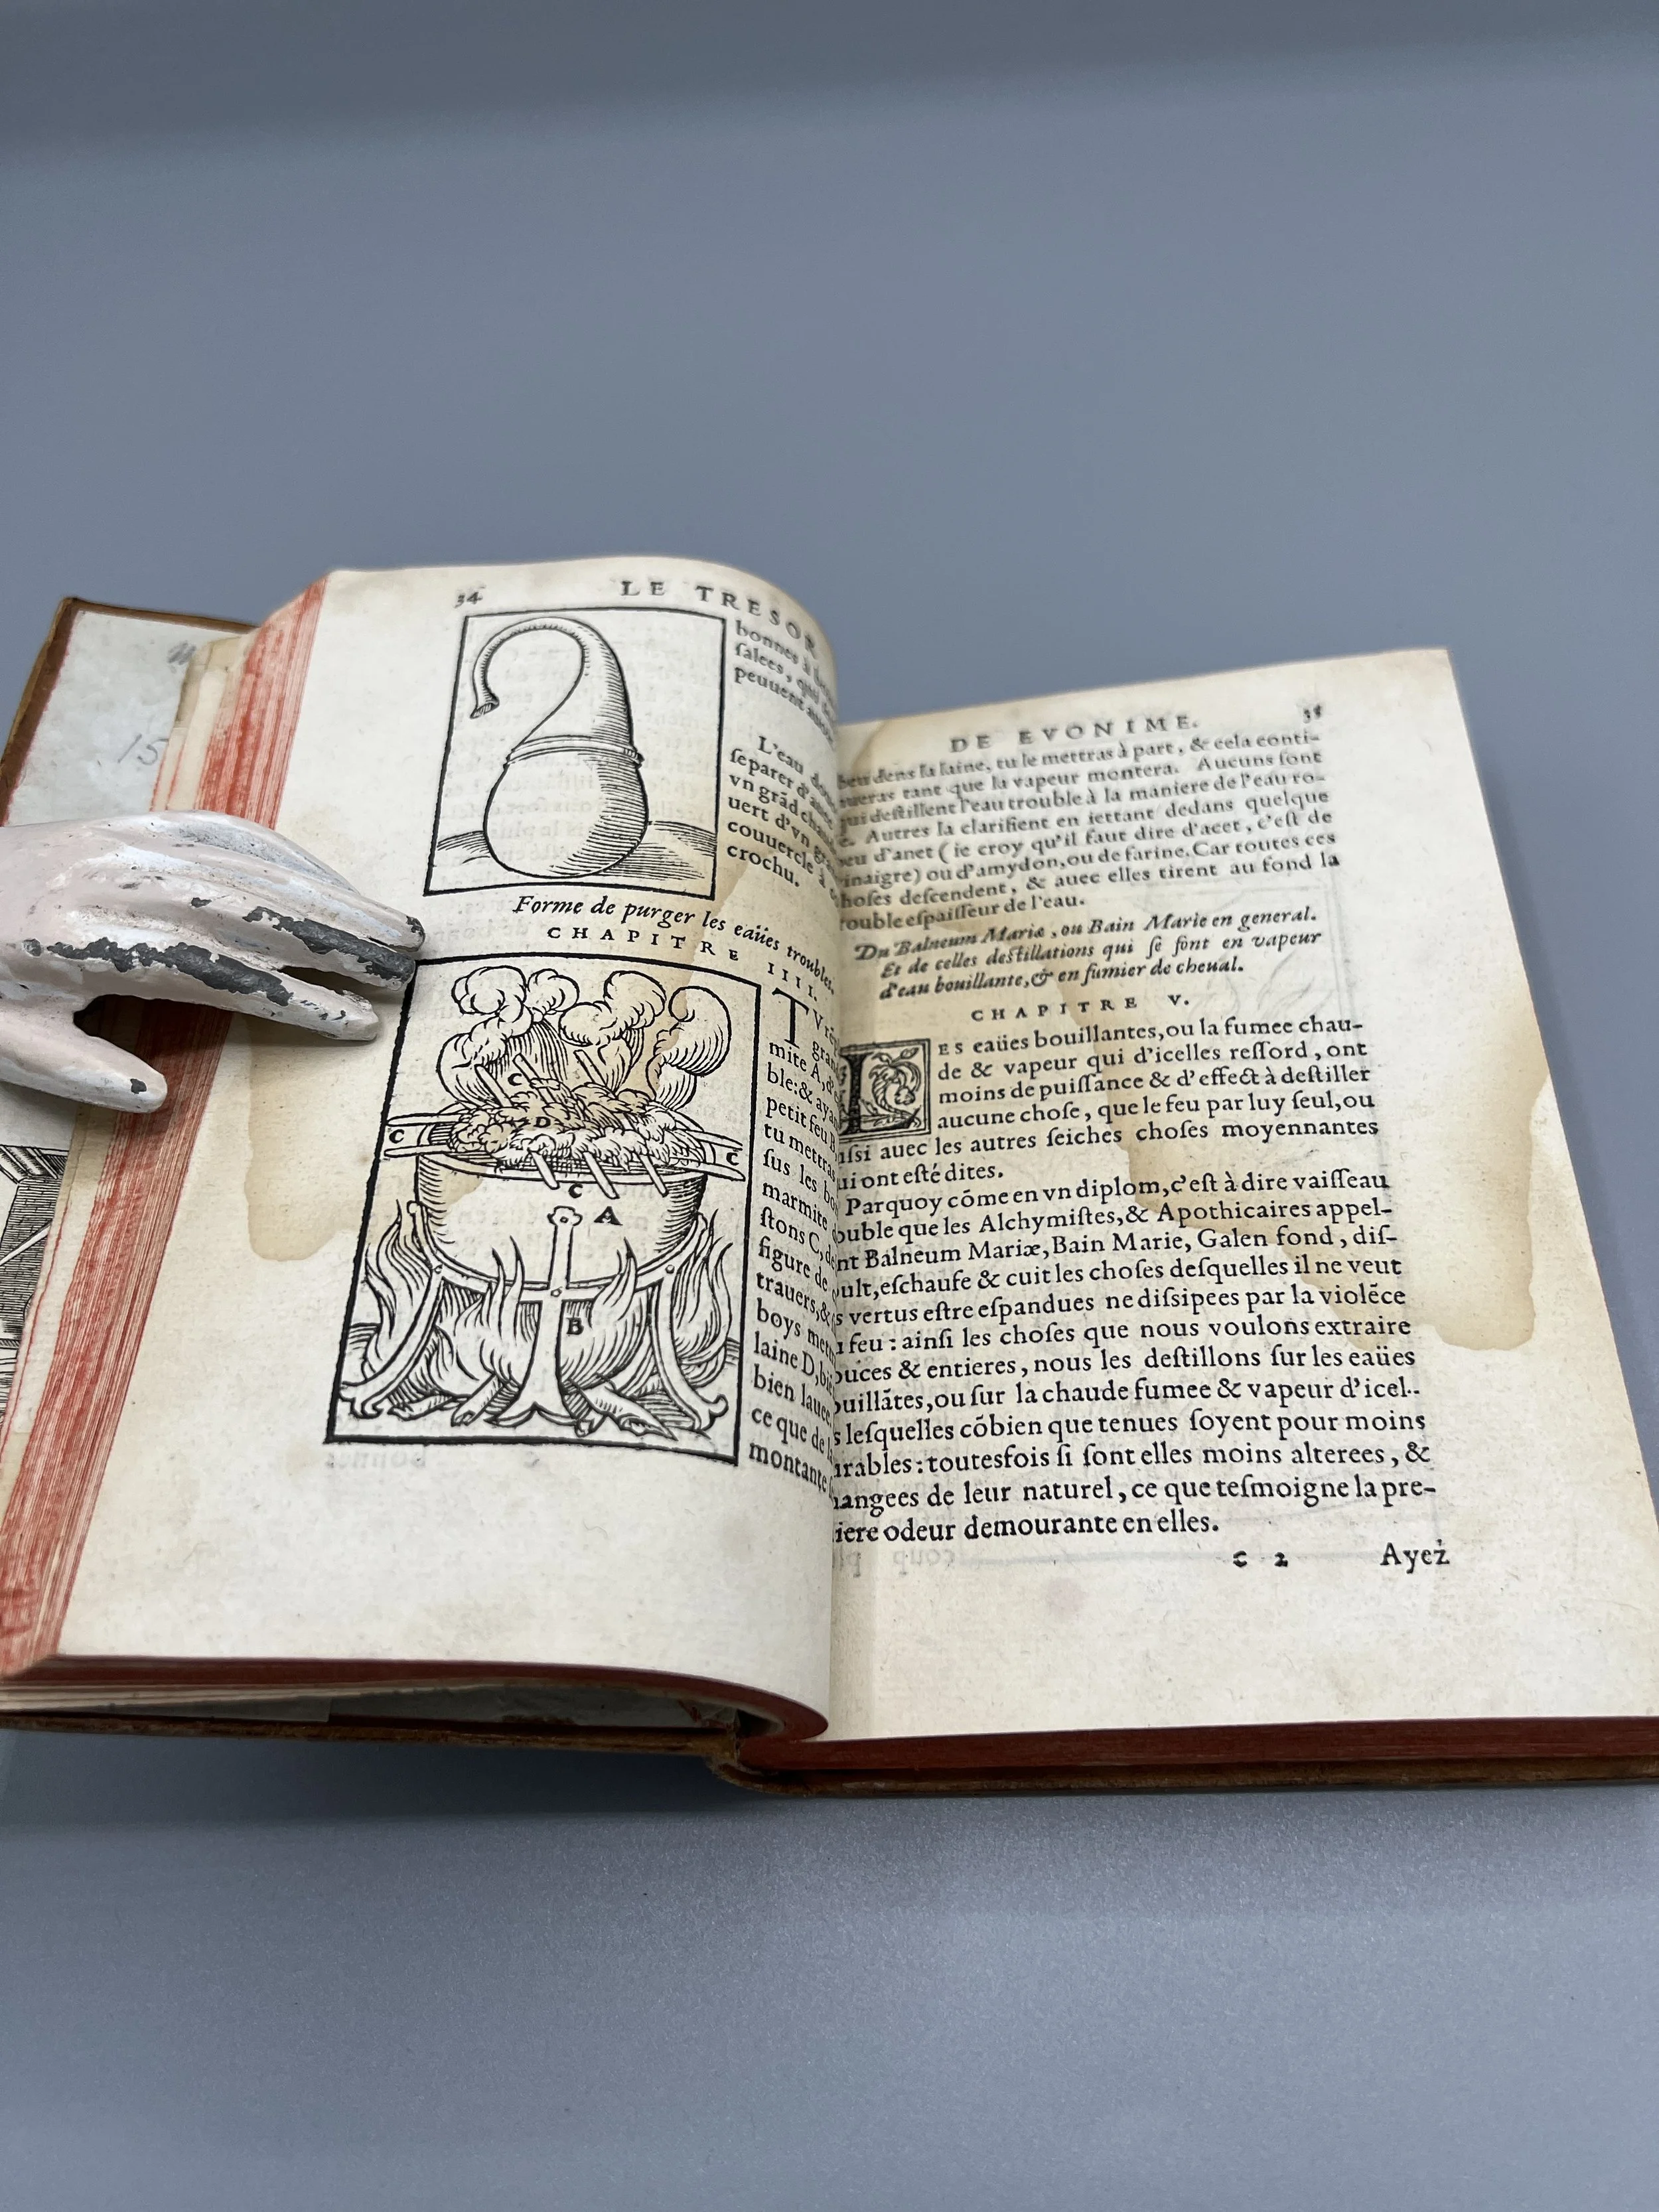 15
34
LE TRESOR
bonnes à
salees,
peuuent
L'eau
separer d'
vn grād
uert d'vn
couuercle à
crochu.
Forme de purger les eaües troubles.
CHAPITRE III.
TV
mite A,
ble: & ayãt
petit feu B,
tu mettras
sus les
marmite
stons C, de
figure de
trauers, &
boys
laine D,
bien lauee,
ce que de la
montante
C
C
D
C
C
A
B
DE EVONIME.
35
dens la laine, tu le mettras à part, & cela conti-
nueras tant que la vapeur montera. Aucuns sont
qui destillent l'eau trouble à la maniere de l'eau ro-
Autres la clarifient en iettant dedans quelque
d'anet (ie croy qu'il faut dire d'acet, c'est de
vinaigre) ou d'amydon, ou de farine. Car toutes ces
choses descendent, & auec elles tirent au fond la
trouble espaisseur de l'eau.
Du Balneum Mariæ, ou Bain Marie en general.
Et de celles destillations qui se font en vapeur
d'eau bouillante, & en fumier de cheual.
CHAPITRE V.
LES eaües bouillantes, ou la fumee chau-
de & vapeur qui d'icelles ressord, ont
moins de puissance & d'effect à destiller
aucune chose, que le feu par luy seul, ou
ussi auec les autres seiches choses moyennantes
ui ont esté dites.
Parquoy cōme en vn diplom, c'est à dire vaisseau
ouble que les Alchymistes, & Apothicaires appel-
nt Balneum Mariæ, Bain Marie, Galen fond, dis-
oult, eschaufe & cuit les choses desquelles il ne veut
s vertus estre espandues ne dissipees par la violēce
u feu: ainsi les choses que nous voulons extraire
ouces & entieres, nous les destillons sur les eaües
ouillātes, ou sur la chaude fumee & vapeur d'icel-
s lesquelles cōbien que tenues soyent pour moins
urables: toutesfois si sont elles moins alterees, &
hangees de leur naturel, ce que tesmoigne la pre-
iere odeur demourante en elles.
C 2
Ayez